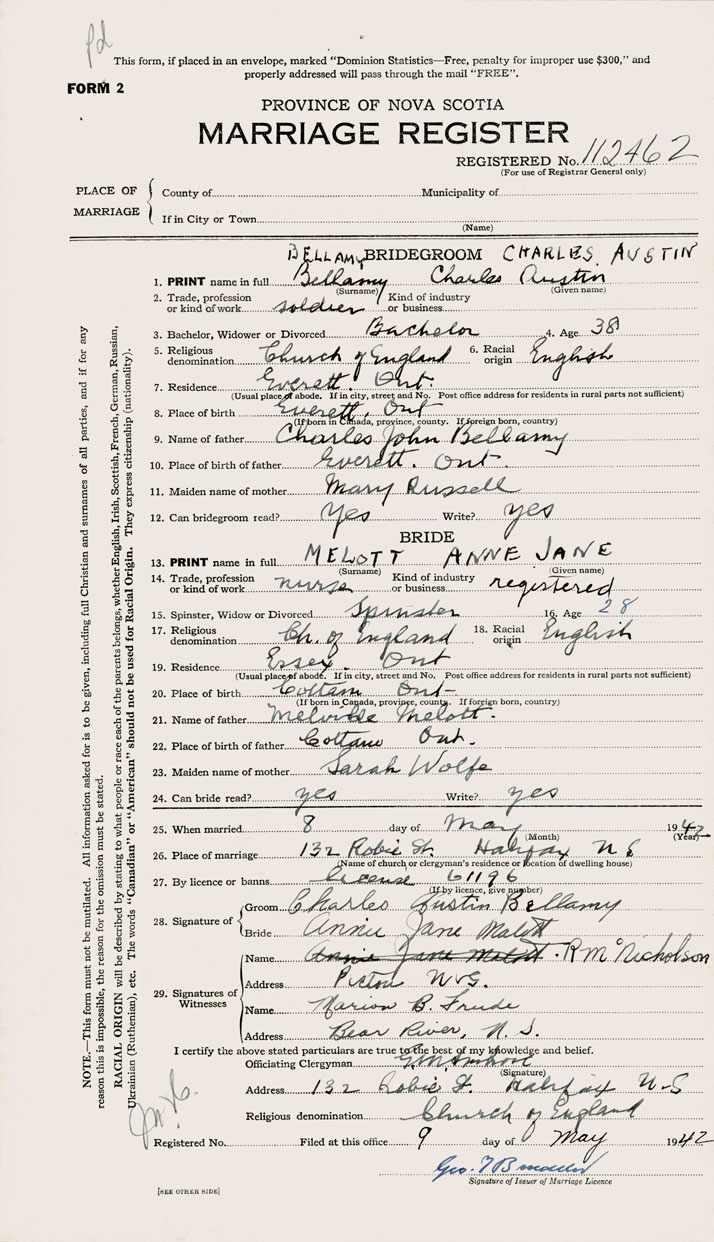 Pd
This form, if placed in an envelope, marked "Dominion Statistics—Free, penalty for improper use $300," and
properly addressed will pass through the mail "FREE".
FORM 2
PROVINCE OF NOVA SCOTIA
MARRIAGE REGISTER
REGISTERED No. 112462
(For use of Registrar General only)
PLACE OF MARRIAGE
County of Municipality of
If in City or Town
(Name)
BELLAMY BRIDEGROOM CHARLES AUSTIN
1. PRINT name in full Bellamy Charles Austin
(Surname) (Given name)
2. Trade, profession or kind of work soldier Kind of industry or business
3. Bachelor, Widower or Divorced Bachelor 4. Age 38
5. Religious denomination Church of England 6. Racial origin English
7. Residence Everett. Ont.
(Usual place of abode. If in city, street and No. Post office address for residents in rural parts not sufficient)
8. Place of birth Everett, Ont
(If born in Canada, province, county. If foreign born, country)
9. Name of father Charles John Bellamy
10. Place of birth of father Everett. Ont.
11. Maiden name of mother Mary Russell
12. Can bridegroom read? Yes Write? yes
BRIDE
13. PRINT name in full MELOTT ANNE JANE
(Surname) (Given name)
14. Trade, profession or kind of work nurse Kind of industry or business registered
15. Spinster, Widow or Divorced Spinster 16. Age 28
17. Religious denomination Ch. of England 18. Racial origin English
19. Residence Essex. Ont
(Usual place of abode. If in city, street and No. Post office address for residents in rural parts not sufficient)
20. Place of birth Cottam Ont-
(If born in Canada, province, county. If foreign born, country)
21. Name of father Melville Melott.
22. Place of birth of father Cottam Ont.
23. Maiden name of mother Sarah Wolfe
24. Can bride read? yes Write? yes
25. When married 8 day of May 1942
(Month) (Year)
26. Place of marriage 132 Robie St. Halifax N S
(Name of church or clergyman's residence or location of dwelling house)
27. By licence or banns license 61196
(If by licence, give number)
28. Signature of
Groom Charles Austin Bellamy
Bride Annie Jane Malott
29. Signatures of Witnesses
Name Annie Jane Malott . R McNicholson
Address Pictou N.S.
Name Marion B. Frude
Address Bear River, N. S.
I certify the above stated particulars are true to the best of my knowledge and belief.
Officiating Clergyman
(Signature)
Address 132 Robie St. Halifax N-S
Religious denomination Church of England
Registered No. Filed at this office 9 day of May 1942
Geo.
Signature of Issuer of Marriage Licence
[SEE OTHER SIDE]
NOTE.—This form must not be mutilated. All information asked for is to be given, including full Christian and surnames of all parties, and if for any
reason this is impossible, the reason for the omission must be stated.
RACIAL ORIGIN will be described by stating to what people or race each of the parents belongs, whether English, Irish, Scottish, French, German, Russian,
Ukrainian (Ruthenian), etc. The words "Canadian" or "American" should not be used for Racial Origin. They express citizenship (nationality).